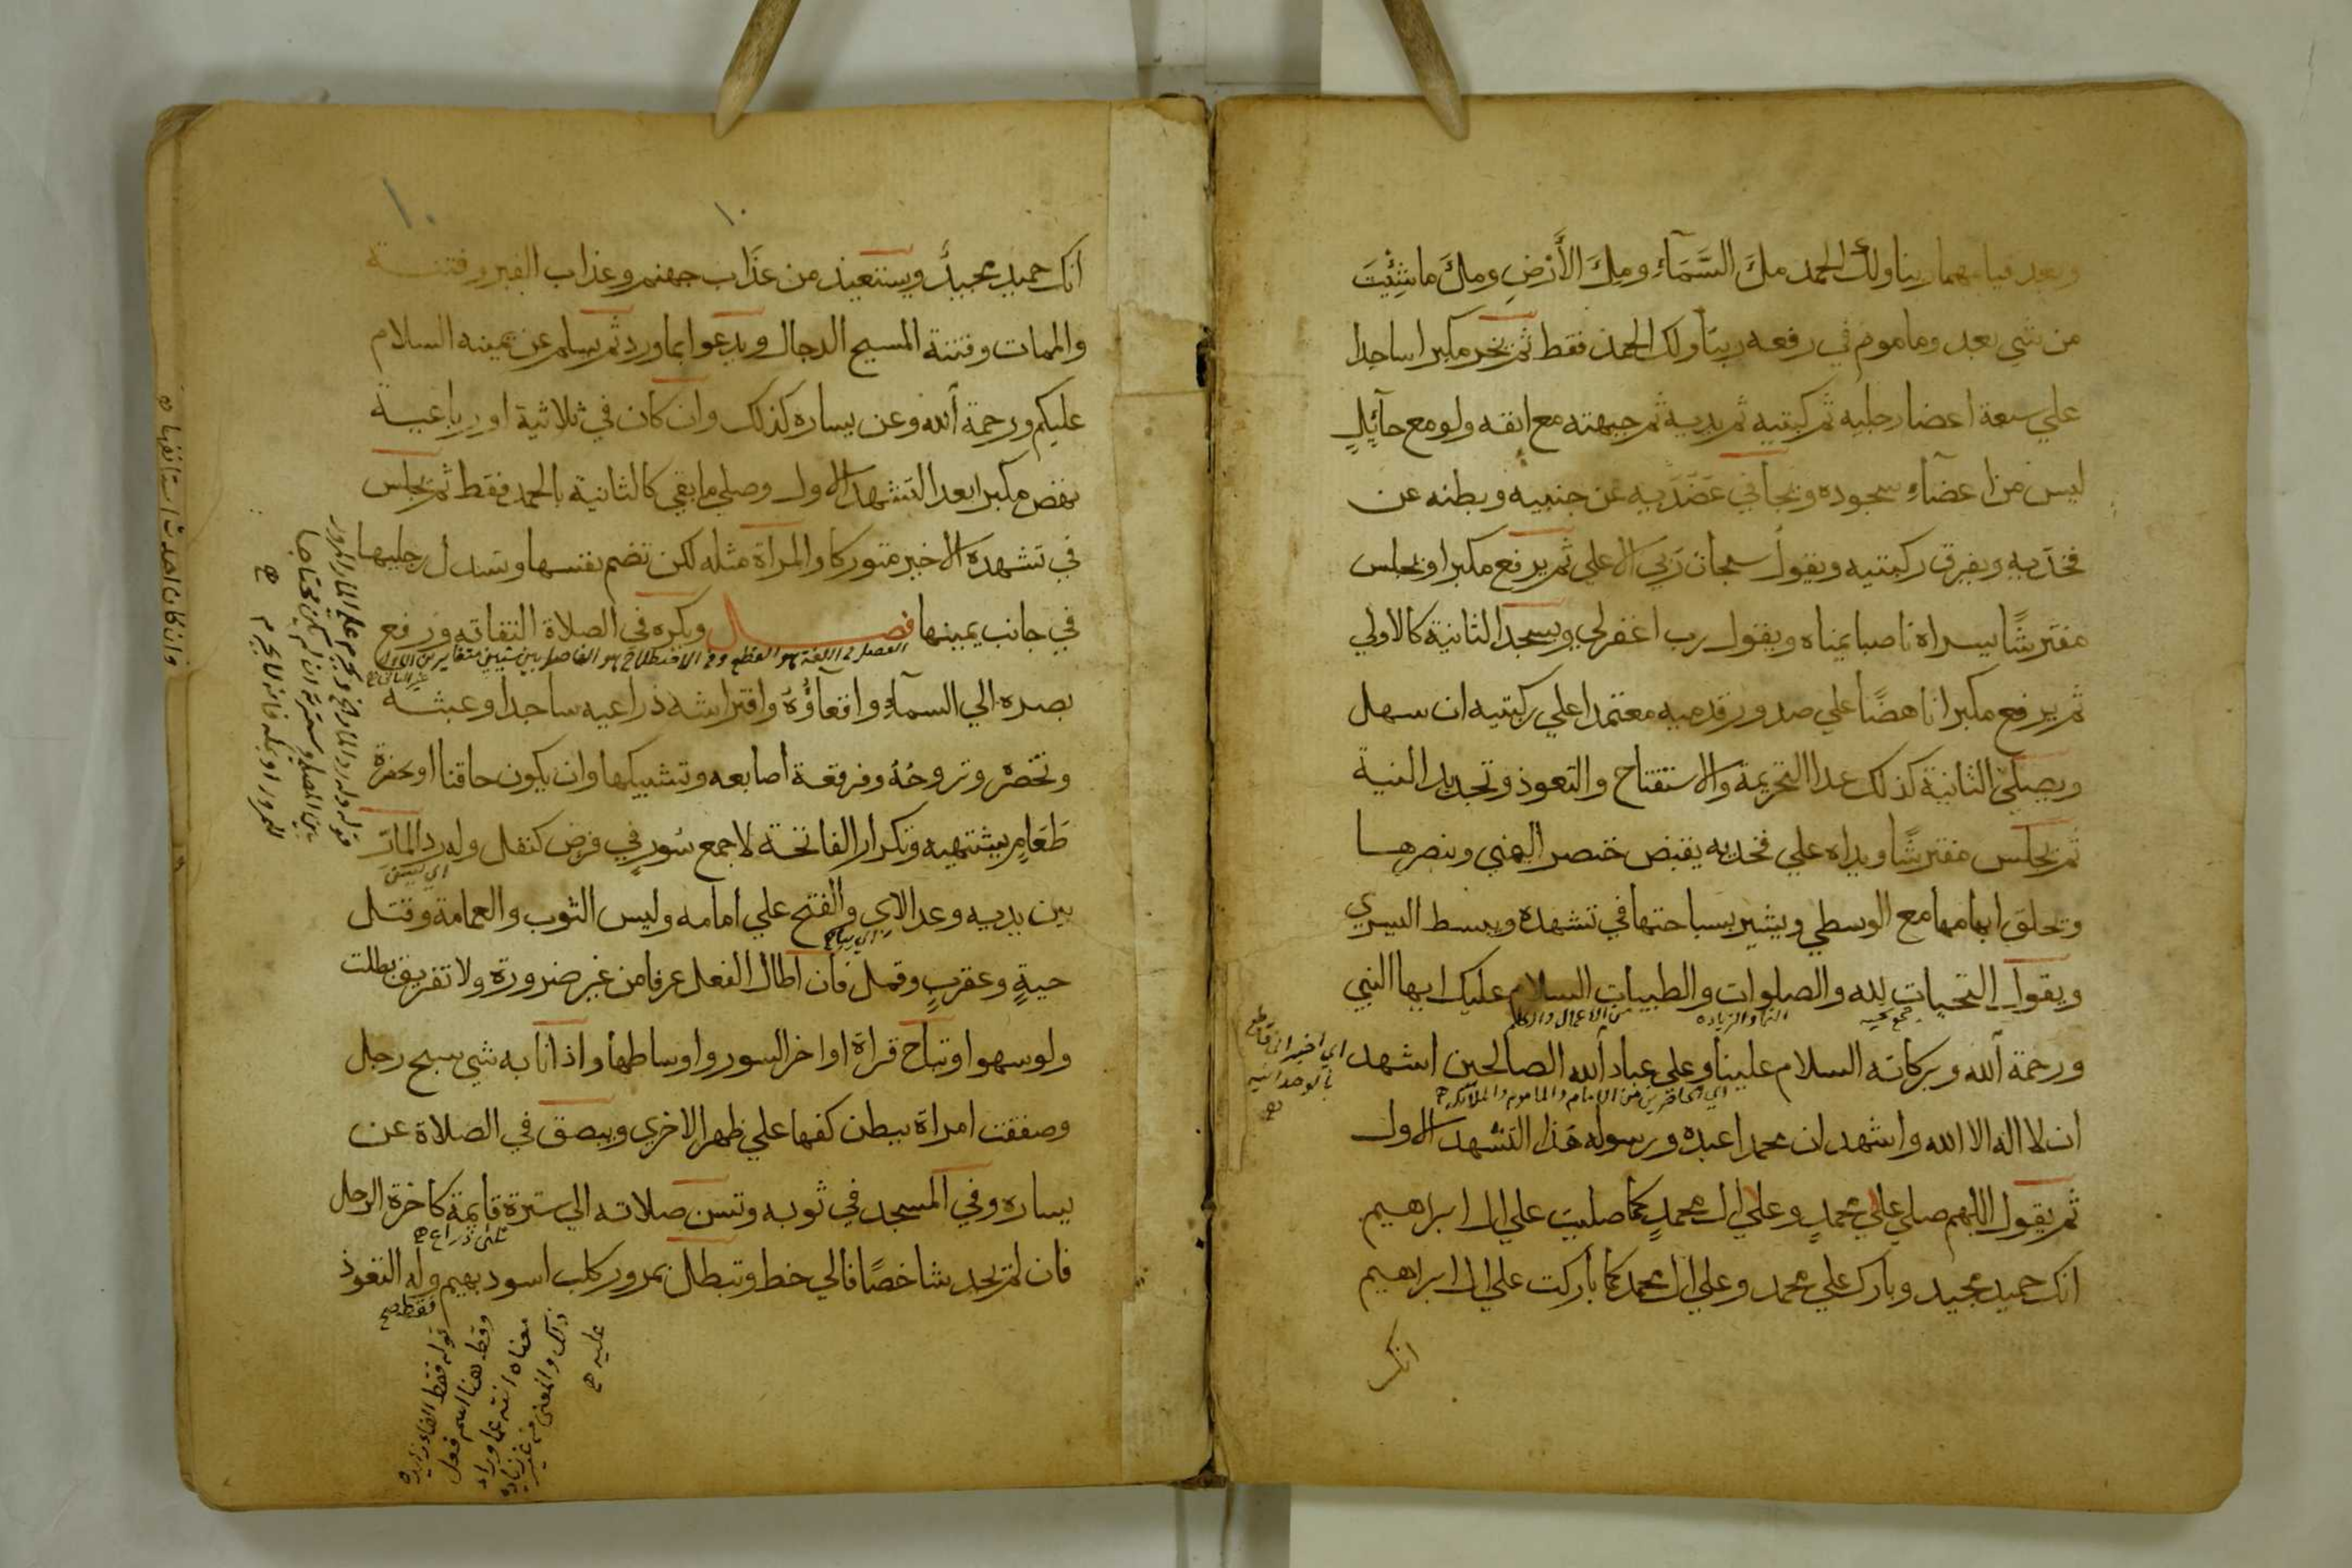 وبعد قيامهما ربنا ولك الحمد ملَٔ السَّمَآءِ ومِلَٔ الأَرْضِ وملَٔ ما شِئْتَ
من شي بعد وماموم في رفعه ربنا ولك الحمد فقط ثم يخر مكبرا ساجدا
علي سبعة اعضا رجليه ثم ركبتيه ثم يديه ثم جبهته مع انفه ولو مع حآئِلٍ
ليس من اعضآءِ سجوده ويجافي عَضُدَيه عن جنبيه وبطنه عن
فخذيه ويفرق ركبتيه ويقول سبحان رَبي الاعلي ثم يرفع مكبرا ويجلس
مفترشًا يسراه ناصبا يمناه ويقول رب اغفر لي ويسجد الثانية كالاولي
ثم يرفع مكبرا ناهضًا علي صدور قدميه معتمدا علي ركبتيه ان سهل
ويصلي الثانية كذلك عدا التحريمة والاستفتاح والتعوذ وتجديد النية
ثم يجلس مفترشًا ويداه علي فخذيه يقبض خنصر اليمني وبنصرها
ويحلق ابهامها مع الوسطي ويشير بسباحتها في تشهده ويبسط اليسري
ويقول التحيات لله والصلوات والطيبات السلام عليك ايها النبي
جمع تحيه
من الاعمال والكلم
ورحمة الله وبركاته السلام علينا وعلي عباد الله الصالحين اشهد
اي الحاضرين من الامام والماموم والملائكه
اي اخبر اني قاطع
بالوحدانيه
ان لا اله الا الله واشهد ان محمدا عبده ورسوله هذا التشهد الاول
ثم يقول اللهم صلي علي محمدٍ وعلي ال محمدٍ كما صليت علي ال ابراهيم
انك حميد مجيد وبارك علي محمد وعلي ال محمد كما باركت علي ال ابراهيم
انك
١٠
١٠
انك حميد مجيدٌ ويستعيذ من عذَاب جهنم وعذاب القبر وفتنة
والممات وفتنة المسيح الدجال ويدعوا بما ورد ثم يسلم عن يمينه السلام
عليكم ورحمة الله وعن يساره كذلك وان كان في ثلاثية او رباعية
نهض مكبرا بعد التشهد الاول وصلي ما بقي كالثانية بالحمد فقط ثم يجلس
في تشهده الاخير متوركا والمراة مثله لكن تضم نفسها وتسدل رجليها
في جانب يمينها فصل ويكره في الصلاة التفاته ورفع
الفصل في اللغة هو القطع وفي الاصطلاح هو الفاصل بين شيئين متغايرين
بصره الي السمآءِ واقعآؤُهُ وافتراشه ذراعيه ساجدا وعبثه
وتخصره وتروحُهُ وفرقعة اصابعه وتشبيكها وان يكون حاقنا او بحضرة
طَعَامٍ يشتهيه وتكرار الفاتحة لا جمع سُورٍ في فرض كنفل وله رد المارّ
بين يديه وعد الاي والفتح علي امامه ولبس الثوب والعمامة وقتل
حيةٍ وعقربٍ وقمل فان اطال الفعل عرفا من غير ضرورة ولا تفريق بطلت
ولو سهوا وتباح قراة اواخر السور واوساطها واذا نابه شي سبح رجل
وصفقت امراة ببطن كفها علي ظهر الاخري ويبصق في الصلاة عن
يساره وفي المسجد في ثوبه وتسن صلاته الي سترة قايمة كاخرة الرحل
ثلثي ذراع
فان لم يجد شاخصًا فالي خط وتبطل بمرور كلب اسود بهيم وله التعوذ
فقط صح
قوله وله رد المار الخ ويحرم علي المار المرور
بين المصلي وسترته ان لم يكن محتاجا
للمرور او بمكه فانه لا يحرم
قوله فقط الفاء زايده
وقط هنا اسم فعل
معناه انته عما وراء
ذلك والمعني من غير زيادة
عليه